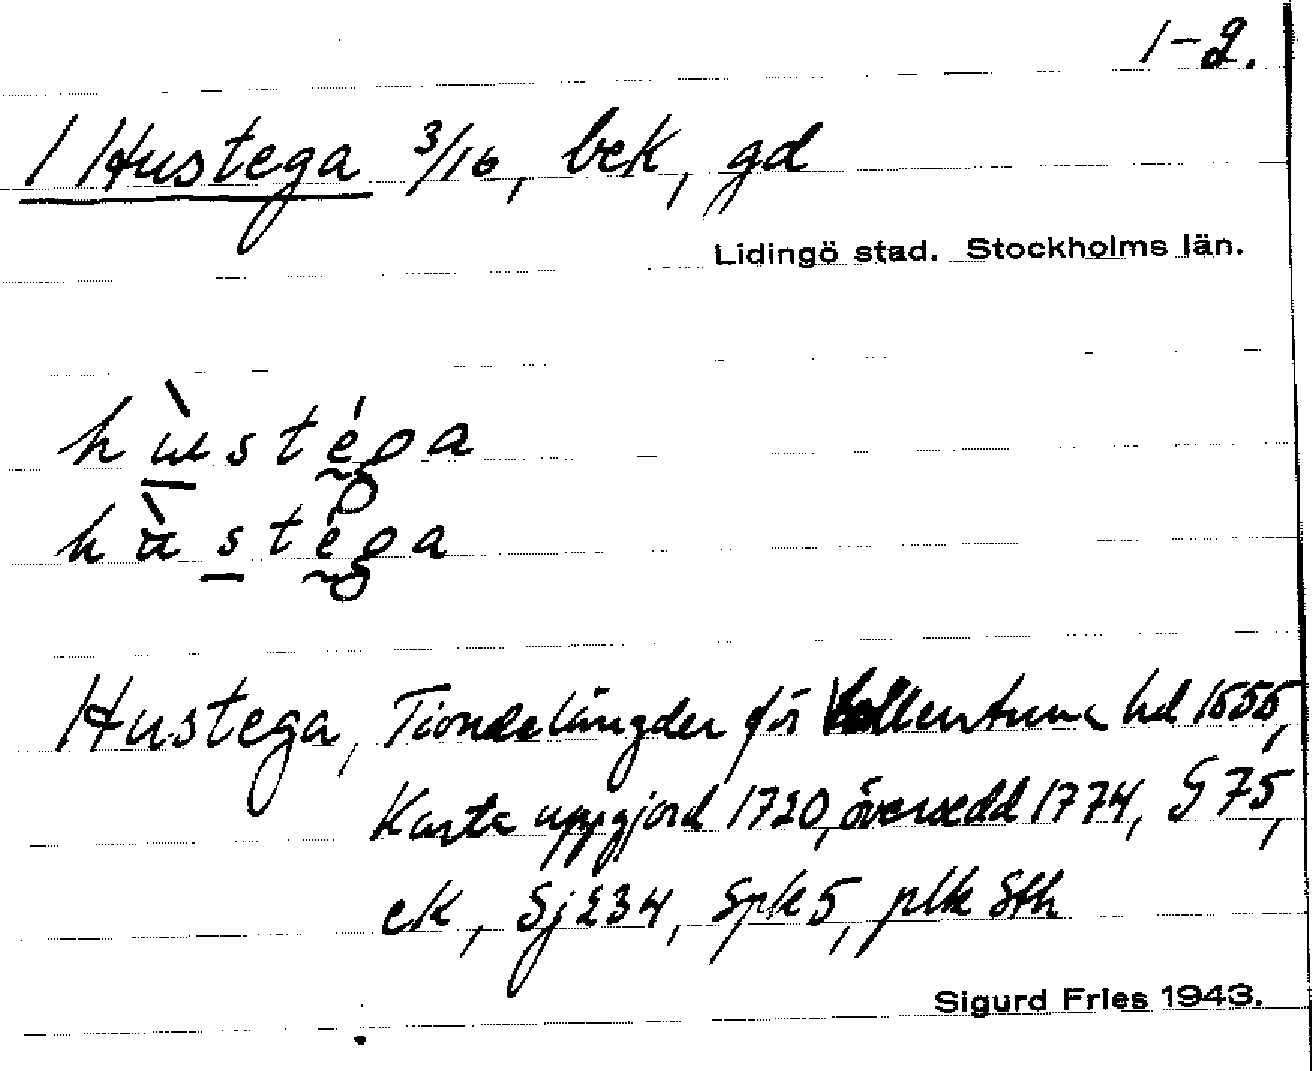 1-2.
1 Hustega 3/16, bek, gd
Lidingö stad. Stockholms län.
hùstéga
hàstéga
Hustega, Tiondelängder för Vallentuna hd 1655,
Karta uppgjord 1720, översedd 1774, G 75,
ek, Sj 234, Spk 5, plk Sth
Sigurd Fries 1943.